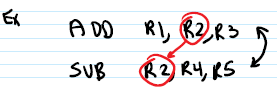 Ex ADD R1, R2, R3
SUB R2, R4, R5